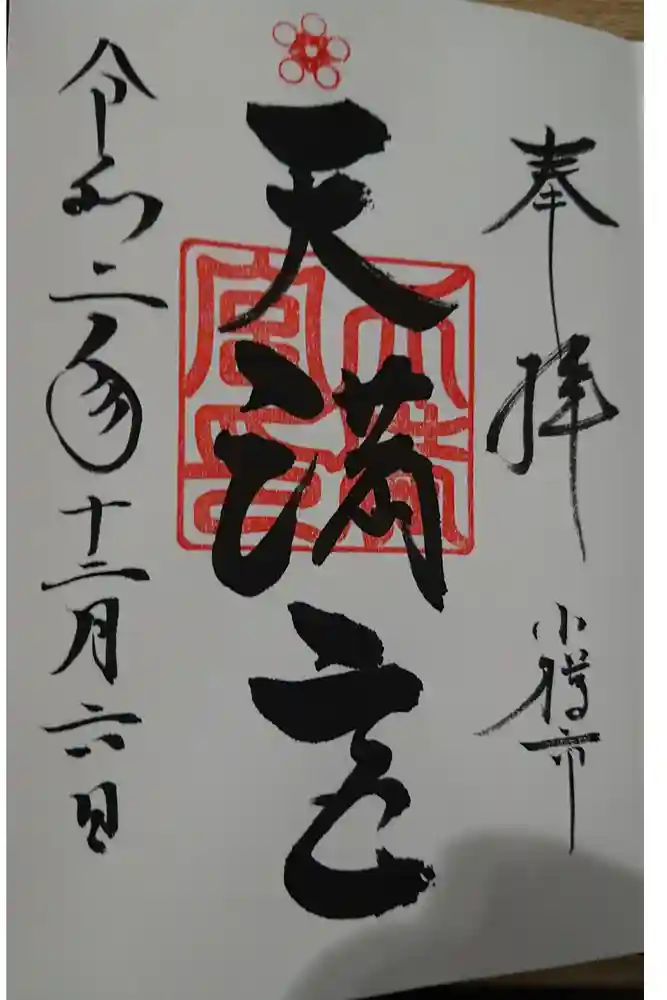 奉拝
小樽市
天満宮
天満宮印
令和二年十二月六日